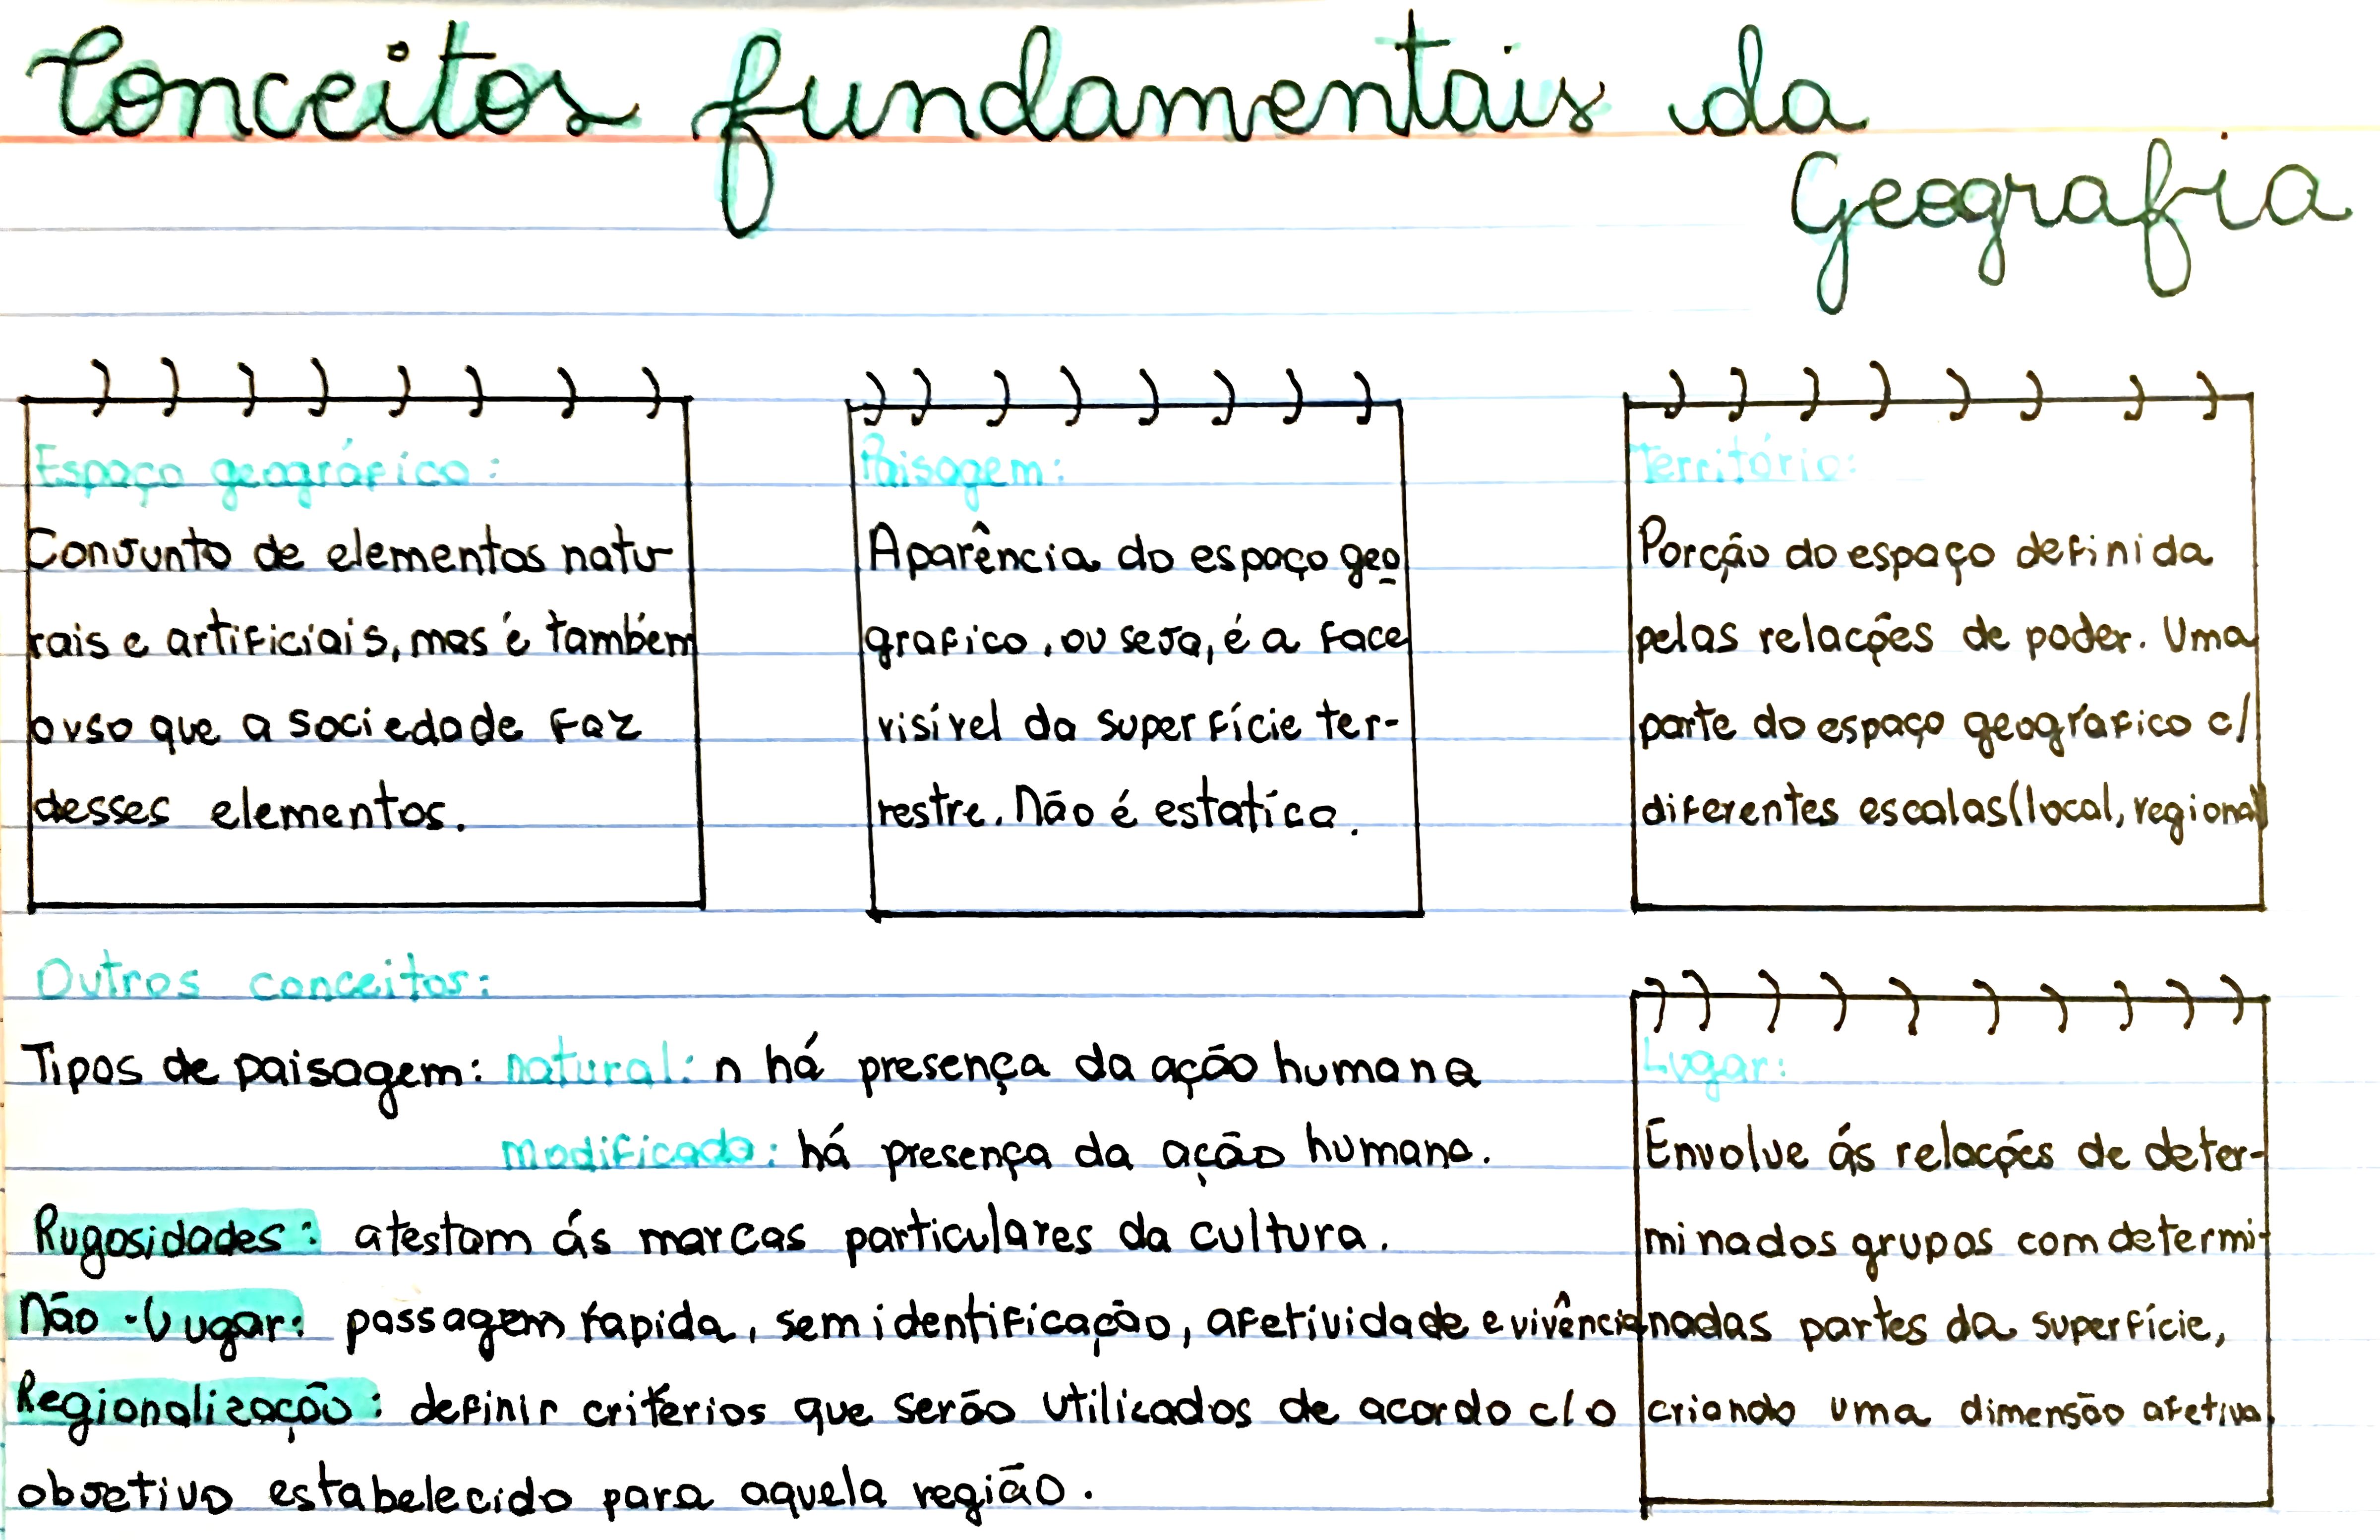 Conceitos fundamentais da
Geografia
Espaço geográfico:
Conjunto de elementos natu-
rais e artificiais, mas é também
o uso que a sociedade faz
desses elementos.
Paisagem:
Aparência do espaço geo
grafico, ou seja, é a face
visível da superfície ter-
restre. Não é estatica.
Território:
Porção do espaço definida
pelas relações de poder. Uma
parte do espaço geográfico c/
diferentes escalas (local, regional)
Outros conceitos:
Tipos de paisagem: natural: n há presença da ação humana
modificada: há presença da ação humana.
Rugosidades: atestam ás marcas particulares da cultura.
Não-Lugar: passagem rápida, sem identificação, afetividade e vivência
Regionalização: definir critérios que serão utilizados de acordo c/ o
objetivo estabelecido para aquela região.
Lugar:
Envolve ás relações de deter-
minados grupos com determi-
nadas partes da superfície,
criando uma dimensão afetiva.